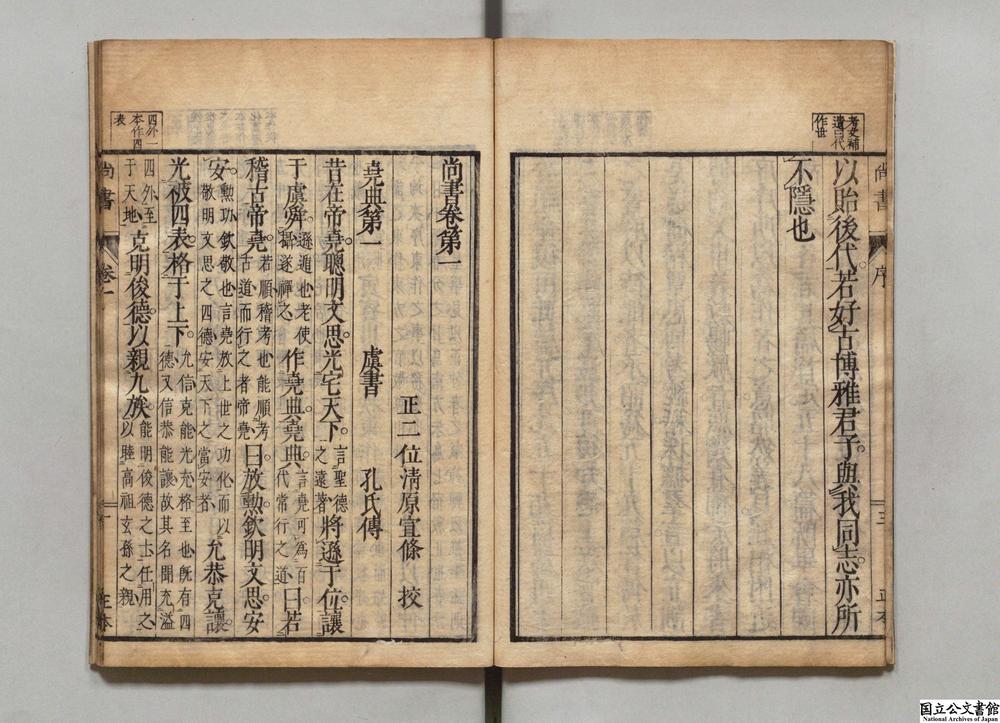 考文補
遺曰代
作世
以貽後代若好古博雅君子與我同志亦所
不隱也
尚書
序
三
正本
尚書卷第一
正二位清原宣條 校
堯典第一 虞書 孔氏傳
昔在帝堯聰明文思光宅天下言聖德之遠著將遜于位讓
于虞舜遜遁也老使攝遂禪之作堯典堯典言堯可爲百代常行之道曰若
稽古帝堯若順稽考也能順考古道而行之者帝堯曰放勲欽明文思安
安勲功欽敬也言堯放上世之功化而以敬明文思之四德安天下之當安者允恭克讓
光被四表格于上下允信克能光充格至也既有四德又信恭能讓故其名聞充溢
四外至于天地克明俊德以親九族能明俊德之士任用之以睦高祖玄孫之親
四外一
本作四
表
尚書
卷一
一
正本
国立公文書館
National Archives of Japan